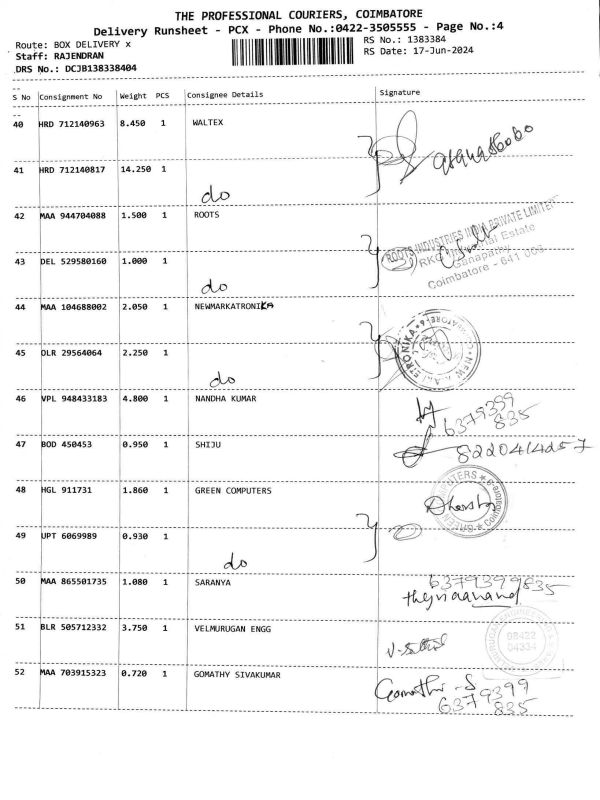 THE PROFESSIONAL COURIERS, COIMBATORE
Delivery Runsheet - PCX - Phone No.:0422-3505555 - Page No.:4
Route: BOX DELIVERY x RS No.: 1383384
Staff: RAJENDRAN RS Date: 17-Jun-2024
DRS No.: DCJB138338404
S No Consignment No Weight PCS Consignee Details Signature
40 HRD 712140963 8.450 1 WALTEX
41 HRD 712140817 14.250 1
do
42 MAA 944704088 1.500 1 ROOTS
ROOTS INDUSTRIES INDIA PRIVATE LIMITED
RKG Industrial Estate
Ganapathy
Coimbatore - 641 006
43 DEL 529580160 1.000 1
do
44 MAA 104688002 2.050 1 NEWMARKATRONIKA
45 OLR 29564064 2.250 1
do
46 VPL 948433183 4.800 1 NANDHA KUMAR
6379399
835
47 BOD 450453 0.950 1 SHIJU
8220414257
48 HGL 911731 1.860 1 GREEN COMPUTERS
49 UPT 6069989 0.930 1
do
50 MAA 865501735 1.080 1 SARANYA
6379399835
51 BLR 505712332 3.750 1 VELMURUGAN ENGG
98422
04334
52 MAA 703915323 0.720 1 GOMATHY SIVAKUMAR
Gomathi - S
6379399
835